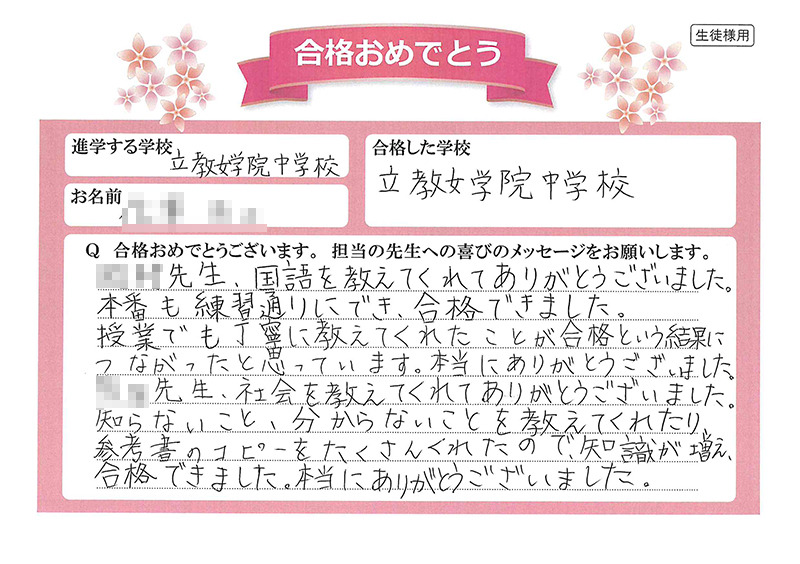 合格おめでとう
生徒様用
進学する学校
立教女学院中学校
お名前
合格した学校
立教女学院中学校
Q 合格おめでとうございます。担当の先生への喜びのメッセージをお願いします。
先生、国語を教えてくれてありがとうございました。
本番も練習通りにでき、合格できました。
授業でも丁寧に教えてくれたことが合格という結果に
つながったと思っています。本当にありがとうございました。
先生、社会を教えてくれてありがとうございました。
知らないこと、分からないことを教えてくれたり、
参考書のコピーをたくさんくれたので、知識が増え、
合格できました。本当にありがとうございました。